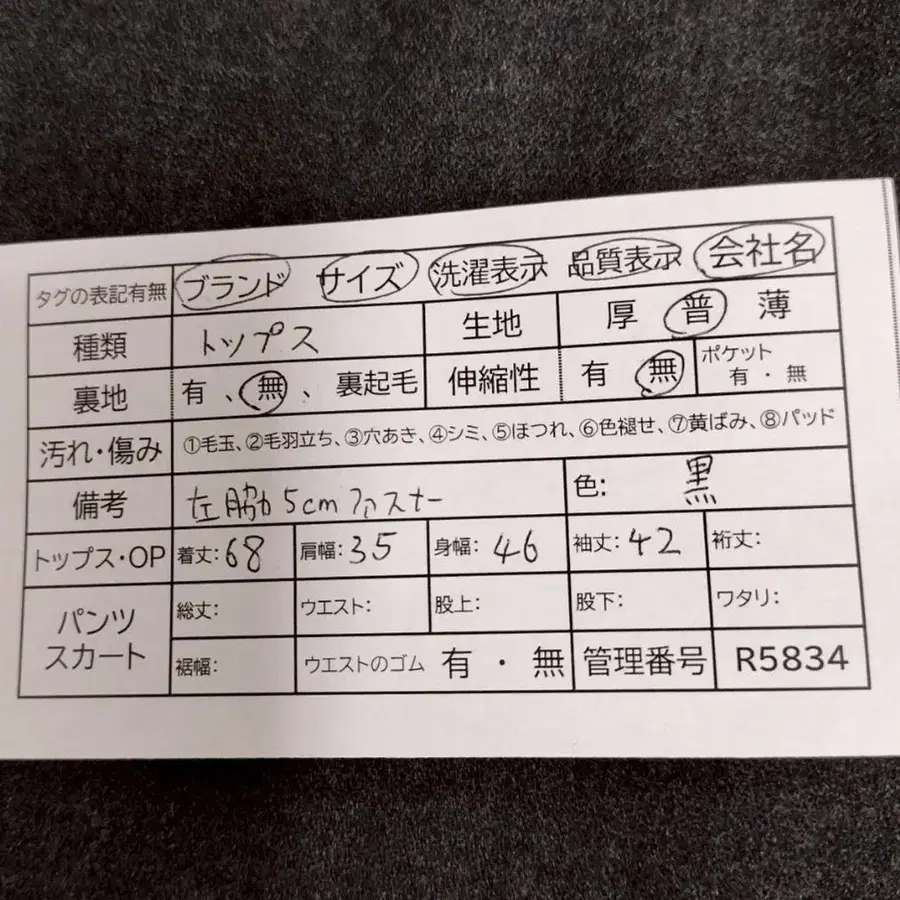 タグの表記有無 ブランド サイズ 洗濯表示 品質表示 会社名
種類 トップス 生地 厚 普 薄
裏地 有 、 無 、 裏起毛 伸縮性 有 無 ポケット 有 ・ 無
汚れ・傷み ①毛玉、②毛羽立ち、③穴あき、④シミ、⑤ほつれ、⑥色褪せ、⑦黄ばみ、⑧パッド
備考 左脇5cmファスナー 色: 黒
トップス・OP 着丈:68 肩幅:35 身幅: 46 袖丈:42 裄丈:
パンツ スカート 総丈: ウエスト: 股上: 股下: ワタリ:
裾幅: ウエストのゴム 有 ・ 無 管理番号 R5834